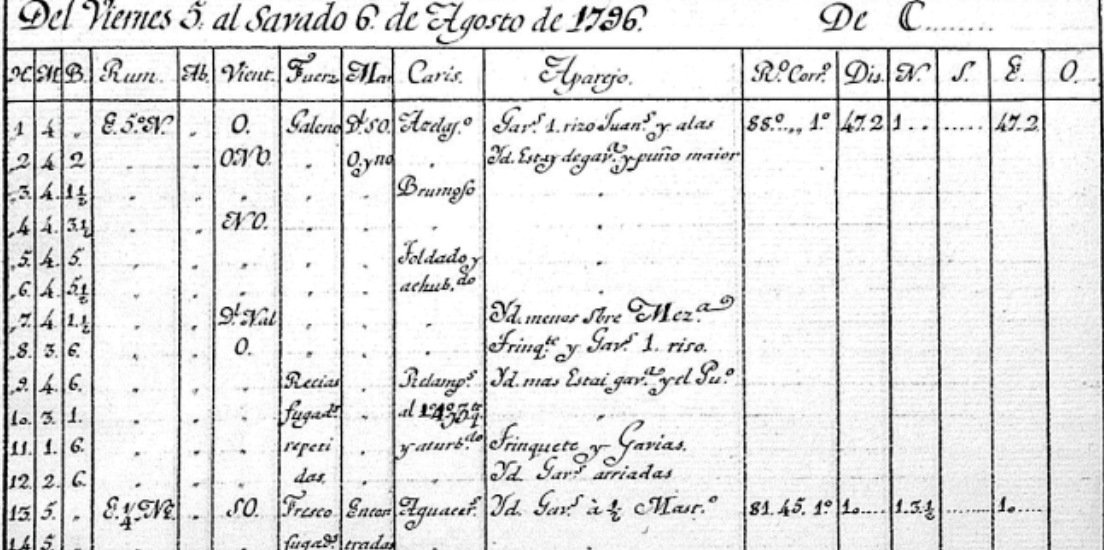 Del Viernes 5. al Savado 6. de Agosto de 1796. De C........
H. M. B. Rum. Ab. Vient. Fuerz. Mar. Caris. Aparejo. R.º Corr.º Dis. N. S. E. O.
1 4 „ E. 5.º N. „ O. Galeno D.ᵗ SO. Azelaj.º Gav.ˢ 1. rizo Juan.ˢ y alas 88.º„„ 1.º 47.2 1 . . ...... 47.2
2 4 2 „ „ ONO. „ O. y no „ Yd. Estay de gav.ᵃ y puño maior
3. 4. 1½ „ „ „ „ „ Brumoso „
4 4. 3.½ „ „ NO. „ „ „ „
5. 4. 5. „ „ „ „ „ Foldado y „
6. 4. 5½ „ „ „ „ „ achub.ᵈᵒ „
7. 4 1.½ „ „ „ „ „ Yd. menos sbre Mez.ᵃ
8. 3. 6. „ „ O. „ „ „ Trinq.ᵗᵉ y Gav.ˢ 1. riso.
9. 4. 6. „ „ „ Recias „ Relamp.ˢ Yd. mas Estai gav.ᵃ y el Pu.º
10. 3. 1. „ „ „ fugad.ˢ „ al „
11. 1. 6. „ „ „ repeti „ y aturb.ᵈᵒ Trinquete y Gavias.
12. 2. 6. „ „ „ das. „ „ Yd. Gav.ˢ arriadas
13. 5. „ E.¼.NE. „ SO. Fresco Encon Aguacer.ˢ Yd. Gav.ˢ à ½ Mast.º 81.45. 1.º 10..... 1.3½ ........ 10.....
14. 5. „ „ „ „ fugad.ˢ tradas „ „